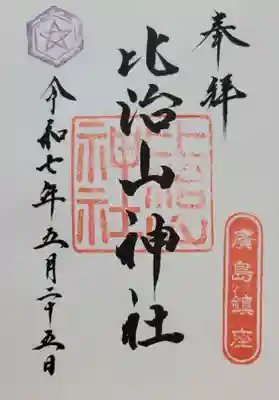 奉拝
廣島鎮座
比治山神社
比治山神社
令和七年五月二十五日